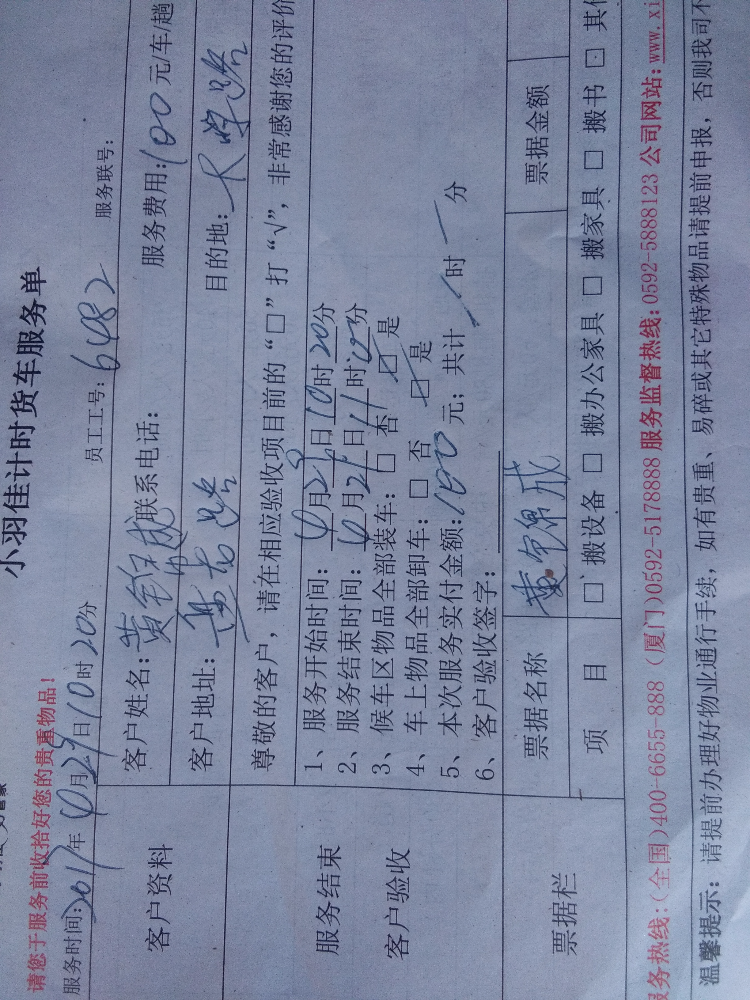 小羽佳计时货车服务单
请您于服务前收拾好您的贵重物品！
服务时间：2017年4月29日10时20分 员工工号：6482 服务联号：
客户资料
客户姓名：黄锦成 联系电话： 服务费用：100元/车/趟
客户地址： 路 目的地：大学路
尊敬的客户，请在相应验收项目前的“□”打“√”，非常感谢您的评价
服务结束
客户验收
1、服务开始时间：4月29日10时20分
2、服务结束时间：4月29日11时00分
3、候车区物品全部装车：□ 否 ☑ 是
4、车上物品全部卸车：□ 否 ☑ 是
5、本次服务实付金额：100元；共计 / 时 / 分
6、客户验收签字：
票据栏
票据名称 黄锦成 票据金额
项 目 □ 搬设备 □ 搬办公家具 □ 搬家具 □ 搬书 □ 其
务热线：(全国)400-6655-888 (厦门)0592-5178888 服务监督热线：0592-5888123 公司网站：www.xi
温馨提示：请提前办理好物业通行手续，如有贵重、易碎或其它特殊物品请提前申报，否则我司不